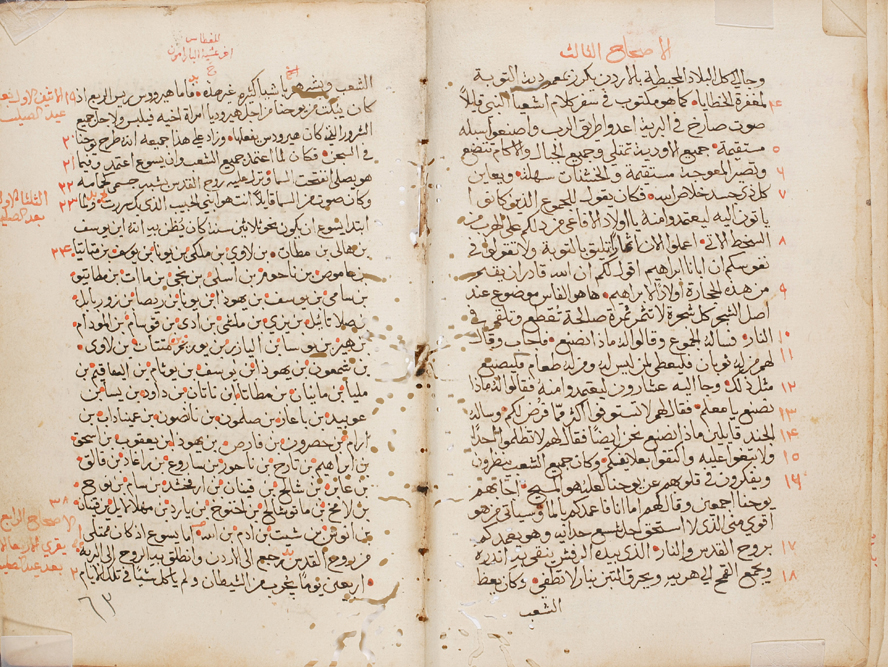 الاصحاح الثالث
وجا الى كل البلاد المحيطة بالاردن يكرز بمعمودية التوبة
لمغفرة الخطايا كما هو مكتوب في سفر كلام اشعيا النبي قايلا ٤
صوت صارخ في البرية اعدوا طريق الرب واصنعوا سبله
مستقيمة جميع الاودية تمتلي وجميع الجبال والاكام تتضع ٥
وتصير المعوجة مستقيمة والخشنان سهلة ويعاين ٦
كل ذي جسد خلاص الله فكان يقول للجموع الذين كانوا ٧
ياتون اليه ليعتمدوا منه يا اولاد الافاعي من دلكم على الهرب من
السخط الاتي اعملوا الان ثمارا تليق بالتوبة ولا تقولوا في ٨
نفوسكم ان ابانا ابراهيم اقول لكم ان الله قادر ان يقيم
من هذه الحجارة اولادا لابراهيم ها هو الفاس موضوع عند ٩
اصل الشجر كل شجرة لا تثمر ثمرة صالحة تقطع وتلقى في
النار فساله الجموع وقالوا له ماذا نصنع فاجاب وقال ١٠
لهم من له ثوبان فليعطي لمن ليس له ومن له طعام فليصنع ١١
مثل ذلك وجا اليه عشارون ليعتمدوا منه فقالوا له ماذا ١٢
نصنع يا معلم فقال لهم لا تستوفوا اكثر مما فرض لكم وساله ١٣
الجند قايلين ماذا نصنع نحن ايضا فقال لهم لا تظلموا احدا ١٤
ولا تبغوا عليه واكتفوا بعلايفكم وكان جميع الشعب ينظرون ١٥
ويفكرون في قلوبهم عن يوحنا لعله هو المسيح اجابهم ١٦
يوحنا اجمعين وقال لهم اما انا فاعمدكم بالما وسياتي من هو
اقوي مني الذي لا استحق احل سيور حذايه وهو يعمدكم
بروح القدس والنار الذي بيده الرفش ينقي بها اندره ١٧
ويجمع القمح الى هريه ويحرق التبن بنار لا تطفى وكان يعظ ١٨
الشعب
للغطاس
الشعب ويبشرهم باشيا كثيرة غير هذه فاما هيرودس ريس الربع اذ ١٩
كان يبكت من يوحنا من اجل هيروديا امراة اخيه فيلبس ولاجل جميع
الشرور الذي كان هيرودس يفعلها وزاد على هذا جميعه انه طرح يوحنا ٢٠
في السجن فكان لما اعتمد جميع الشعب وان يسوع اعتمد وفيما ٢١
هو يصلي انفتحت السما ونزل عليه روح القدس بشبه جسم حمامة ٢٢
وكان صوت من السما قايلا انت هو ابني الحبيب الذي بك سررت ٢٣
ابتدا يسوع ان يكون نحو ثلاثين سنة كان يظن به انه ابن يوسف
بن هالي بن مطان بن لاوي بن ملكي بن يونا بن يوسف بن متاتيا ٢٤
بن عاموص بن ناحوم بن اسلي بن نجي بن ماات بن ماتيو
بن سامي بن يوسف بن يهودا بن يونا بن ريصا بن زوربابل
بن صلاتايل بن نري بن ملشي بن ادي بن قوسام بن المودام
بن هير بن يوسا بن اليازر بن يورم بن متتات بن لاوي
بن شمعون بن يهودا بن يوسف بن يونام بن الياقيم بن
مليا بن ماينان بن مطاتا بن ناتان بن داود بن يسا بن
عوبيد بن باعاز بن صلمون بن ناصون بن عميناداب بن
ارام بن حصرون بن فارص بن يهودا بن يعقوب بن اسحق
بن ابراهيم بن تارح بن ناحور بن ساروغ بن راغاو بن فالق
بن عابر بن شالح بن قينان بن ارفخشد بن سام بن نوح
بن لامخ بن ماتوشالح بن اخنوخ بن يارد بن مهلالايل بن قينان ٣٨
بن انوش بن شيت بن ادم بن الله اما يسوع اذ كان ممتلي
من روح القدس رجع الى الاردن وانطلق به الروح الى البرية
اربعين يوما يجرب من الشيطان ولم ياكل شيا في تلك الايام ٢
الاصحاح الرابع
٦٣